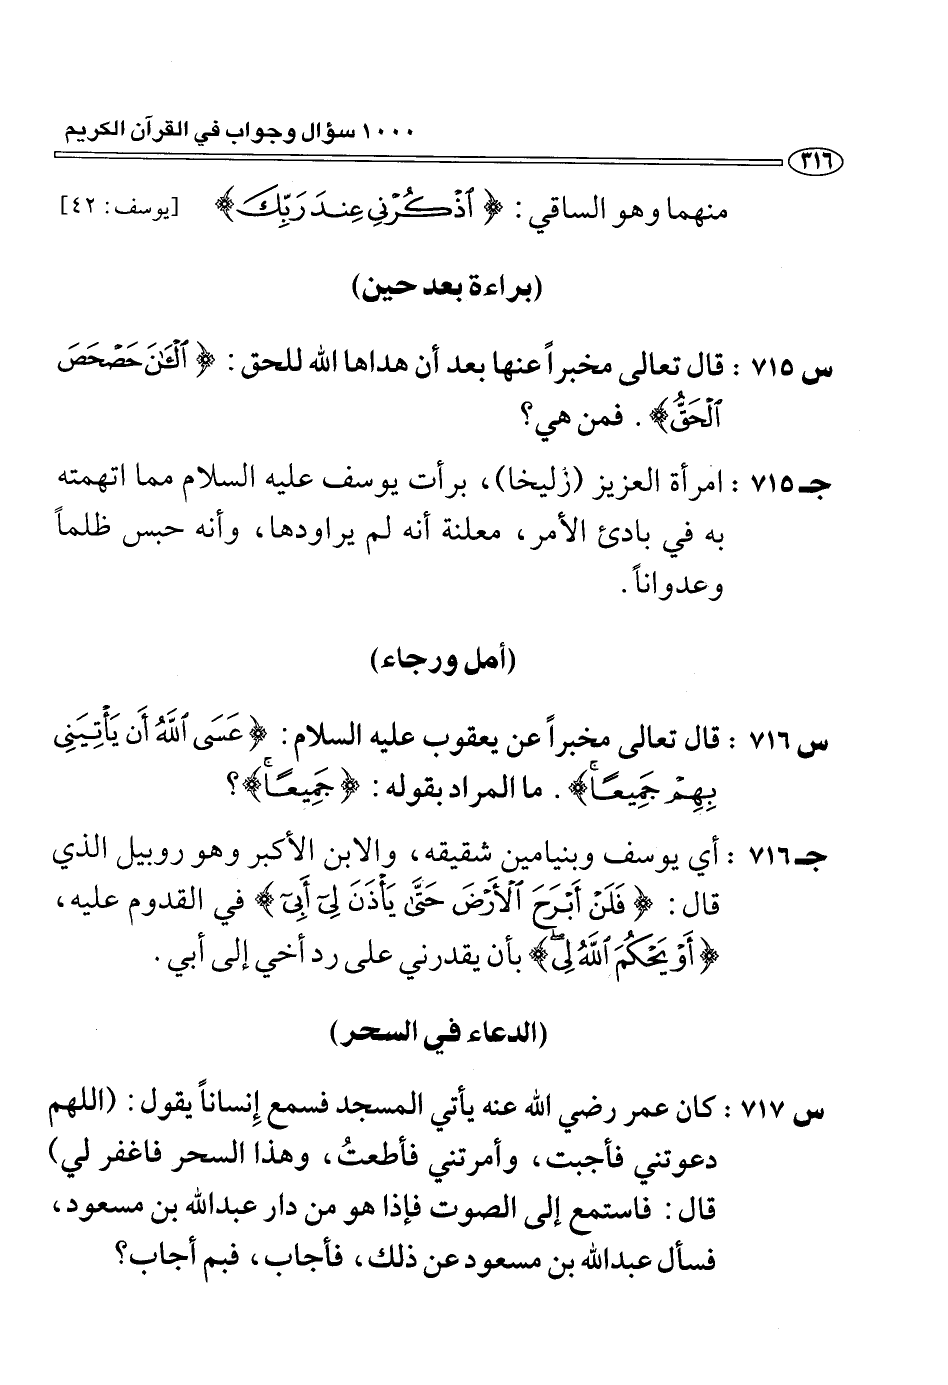 ١٠٠٠ سؤال وجواب في القرآن الكريم
٣١٦
منهما وهو الساقي: ﴿ ٱذْكُرْنِي عِندَ رَبِّكَ ﴾ [يوسف: ٤٢]
(براءة بعد حين)
س ٧١٥ : قال تعالى مخبراً عنها بعد أن هداها الله للحق: ﴿ ٱلْـَٰٔنَ حَصْحَصَ
ٱلْحَقُّ ﴾. فمن هي؟
جـ ٧١٥ : امرأة العزيز (زُليخا)، برأت يوسف عليه السلام مما اتهمته
به في بادئ الأمر، معلنة أنه لم يراودها، وأنه حبس ظلماً
وعدواناً.
(أمل ورجاء)
س ٧١٦ : قال تعالى مخبراً عن يعقوب عليه السلام: ﴿ عَسَى ٱللَّهُ أَن يَأْتِيَنِي
بِهِمْ جَمِيعًاۚ ﴾. ما المراد بقوله: ﴿ جَمِيعًاۚ ﴾؟
جـ ٧١٦ : أي يوسف وبنيامين شقيقه، والابن الأكبر وهو روبيل الذي
قال: ﴿ فَلَنْ أَبْرَحَ ٱلْأَرْضَ حَتَّىٰ يَأْذَنَ لِىٓ أَبِىٓ ﴾ في القدوم عليه،
﴿ أَوْ يَحْكُمَ ٱللَّهُ لِىۖ ﴾ بأن يقدرني على رد أخي إلى أبي.
(الدعاء في السحر)
س ٧١٧ : كان عمر رضي الله عنه يأتي المسجد فسمع إنساناً يقول: (اللهم
دعوتني فأجبت، وأمرتني فأطعتُ، وهذا السحر فاغفر لي)
قال: فاستمع إلى الصوت فإذا هو من دار عبدالله بن مسعود،
فسأل عبدالله بن مسعود عن ذلك، فأجاب، فبم أجاب؟